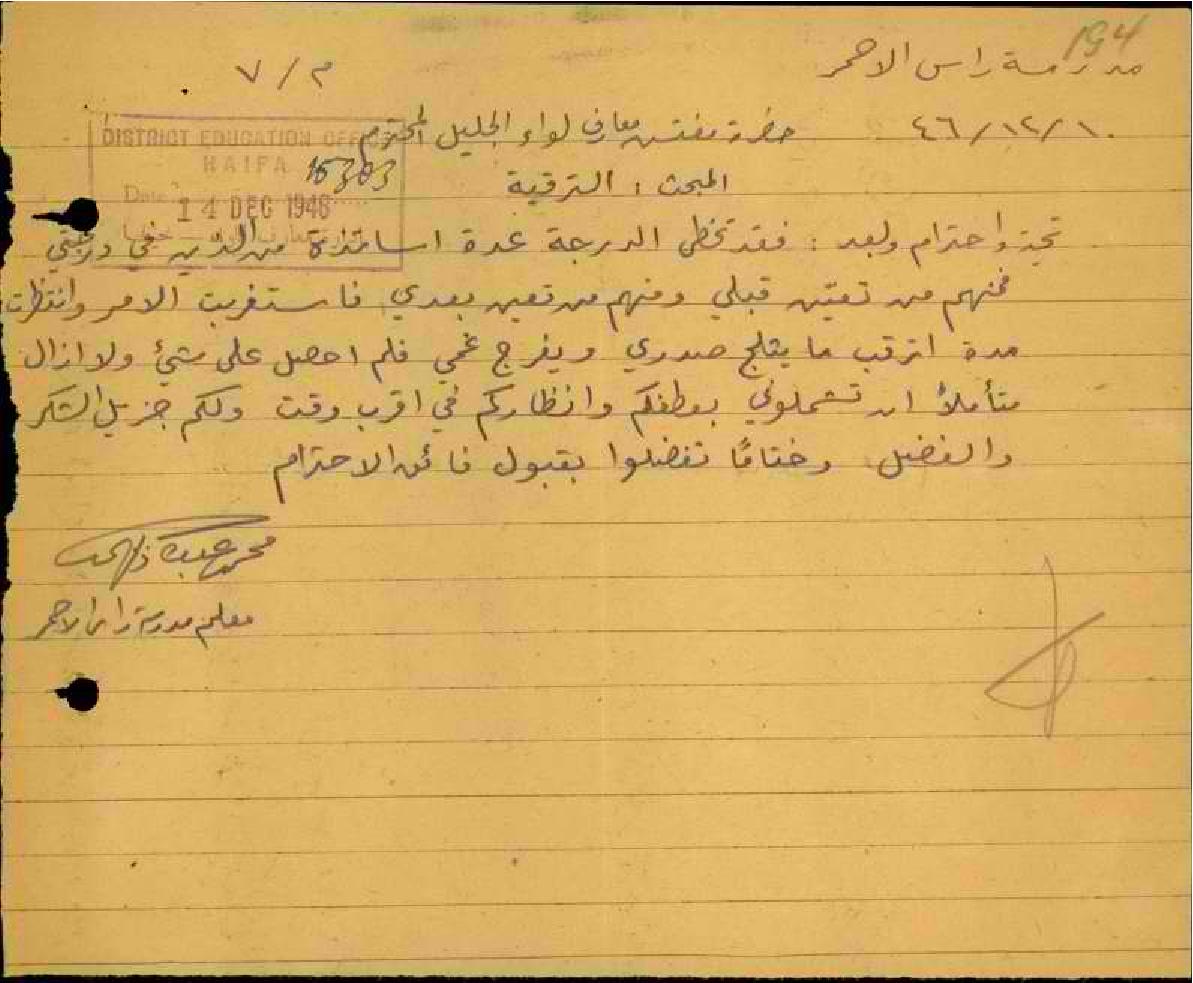 194
مدرسة راس الاحمر
م / ٧
٤٦/١٢/١٠
حضرة مفتش معارف لواء الجليل المحترم
DISTRICT EDUCATION OFFICE
HAIFA
15303
Date 14 DEC 1946
المبحث : الترقية
تحية واحترام وبعد : فقد تخطى الدرجة عدة اساتذة من الذين في درجتي
فمنهم من تعيّن قبلي ومنهم من تعين بعدي فاستغربت الامر وانتظرت
مدة اترقب ما يثلج صدري ويفرج غمي فلم احصل على شيئ ولا ازال
متأملاً ان تشملوني بعطفكم وانظاركم في اقرب وقت ولكم جزيل الشكر
والفضل. وختامًا تفضلوا بقبول فائق الاحترام
محمد
معلم مدرسة راس الاحمر